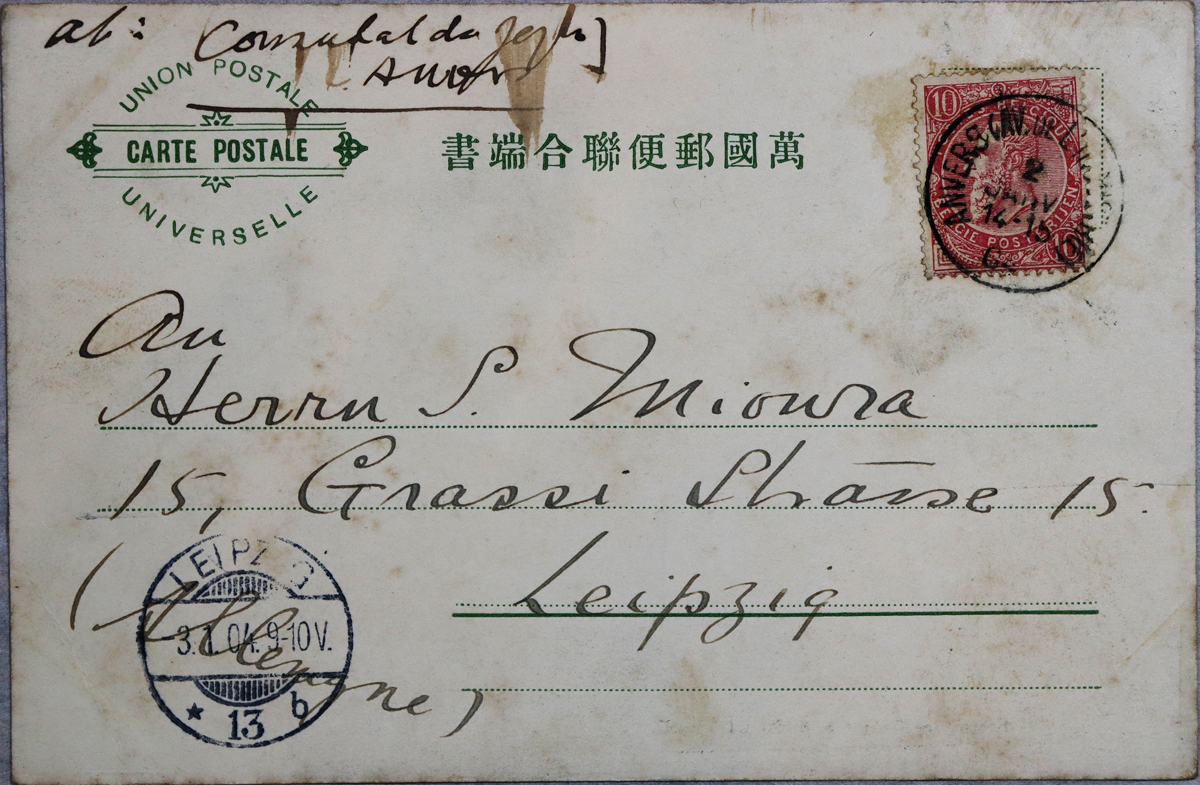 ab:
Anvers
UNION POSTALE
CARTE POSTALE
UNIVERSELLE
書端合聯便郵國萬
10
POSTERIJEN
10
ANVERS
2
JANV
14-15
An
Herrn S. Mioura
15, Grassi Strasse 15.
Leipzig
(Allemagne)
LEIPZIG
3.1.04.9-10V.
* 13 b